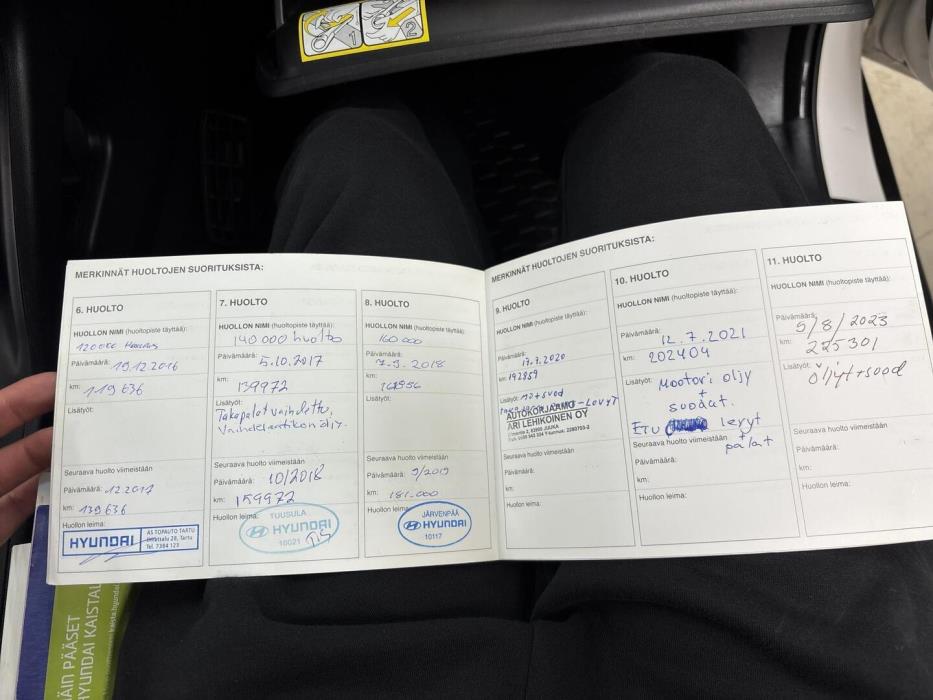 1
2
MERKINNÄT HUOLTOJEN SUORITUKSISTA:
6. HUOLTO
HUOLLON NIMI (huoltopiste täyttää):
120000
Päivämäärä: 19.12.2016
km: 119 636
Lisätyöt:
Seuraava huolto viimeistään
Päivämäärä: 12.2017
km: 139636
Huollon leima:
HYUNDAI
AS TOPAUTO TARTU
28, Tartu
Tel. 7384 123
7. HUOLTO
HUOLLON NIMI (huoltopiste täyttää):
140 000 huolto
Päivämäärä: 5.10.2017
km: 139972
Lisätyöt:
Takapalat vaihdettu,
Seuraava huolto viimeistään
Päivämäärä: 10/2018
km: 159972
Huollon leima:
TUUSULA
HYUNDAI
10021
8. HUOLTO
HUOLLON NIMI (huoltopiste täyttää):
160 000
Päivämäärä: 7.9.2018
km:
Lisätyöt:
Seuraava huolto viimeistään
Päivämäärä: 9/2019
km: 181.000
Huollon leima:
JÄRVENPÄÄ
HYUNDAI
10117
MERKINNÄT HUOLTOJEN SUORITUKSISTA:
9. HUOLTO
HUOLLON NIMI (huoltopiste täyttää):
Päivämäärä:
17.7.2020
km: 192859
Lisätyöt:
-LEVYT
AUTOKORJAAMO
ARI LEHIKOINEN OY
83900 JUUKA
Seuraava huolto viimeistään
Päivämäärä:
km:
Huollon leima:
10. HUOLTO
HUOLLON NIMI (huoltopiste täyttää):
Päivämäärä: 12.7.2021
km: 202404
Lisätyöt: Moottori öljy
+
suodat.
ETU levyt
+
palat
Seuraava huolto viimeistään
Päivämäärä:
km:
Huollon leima:
11. HUOLTO
HUOLLON NIMI (huoltopiste täyttää):
Päivämäärä:
5/8/2023
km: 225301
Lisätyöt: Öljyt+suod
Seuraava huolto viimeistään
Päivämäärä:
km:
Huollon leima:
ÄIN PÄÄSET
HYUNDAI KAISTAL